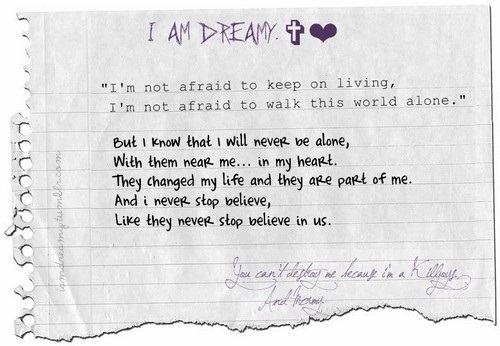 I AM DREAMY.
"I'm not afraid to keep on living,
I'm not afraid to walk this world alone."
But I know that I will never be alone,
With them near me... in my heart.
They changed my life and they are part of me.
And i never stop believe,
Like they never stop believe in us.
You can't destroy me because i'm a Killjoy.
And
iamdreamy.tumblr.com